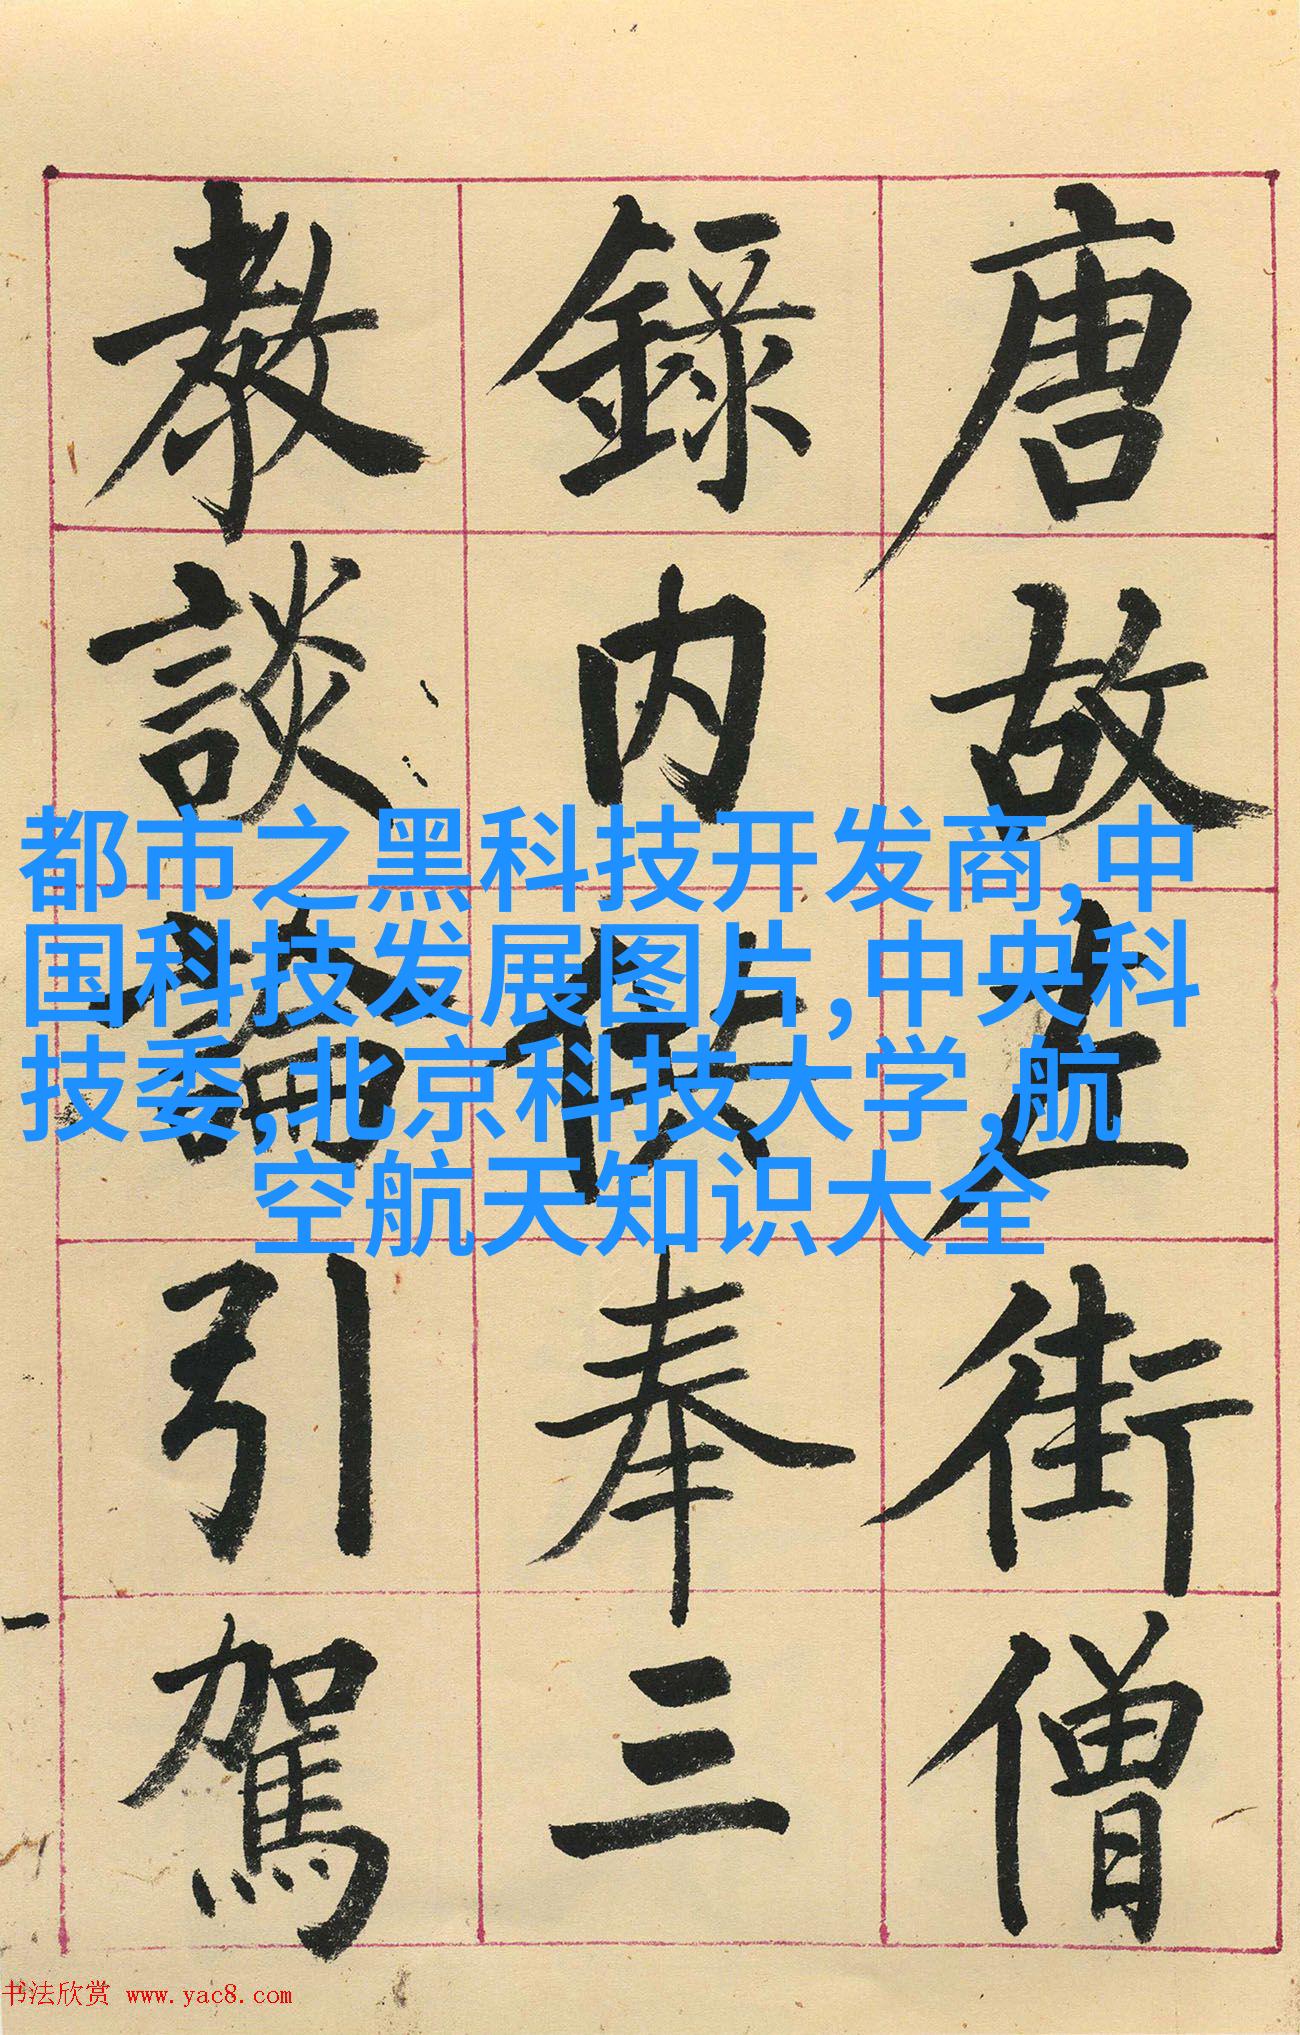 唐故左街僧
錄內供奉三
教談論引駕
都市之黑科技开发商,中
国科技发展图片,中央科
技委,北京科技大学,航
空航天知识大全
书法欣赏 www.yac8.com